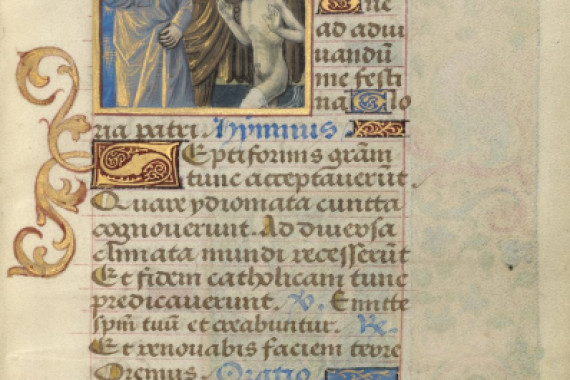 ne
ad adiu
uandū
me festi
na Glo
ria patri. Hymnus
Septiformis grām
tunc acceptauerūt.
Quare ydiomata cuncta
cognouerunt. Ad diuersa
climata mundi recesserūt
Et fidem catholicam tunc
predicauerunt. V. Emitte
spm tuū et creabuntur. R.
Et renouabis faciem terre
Oremus. Oratio